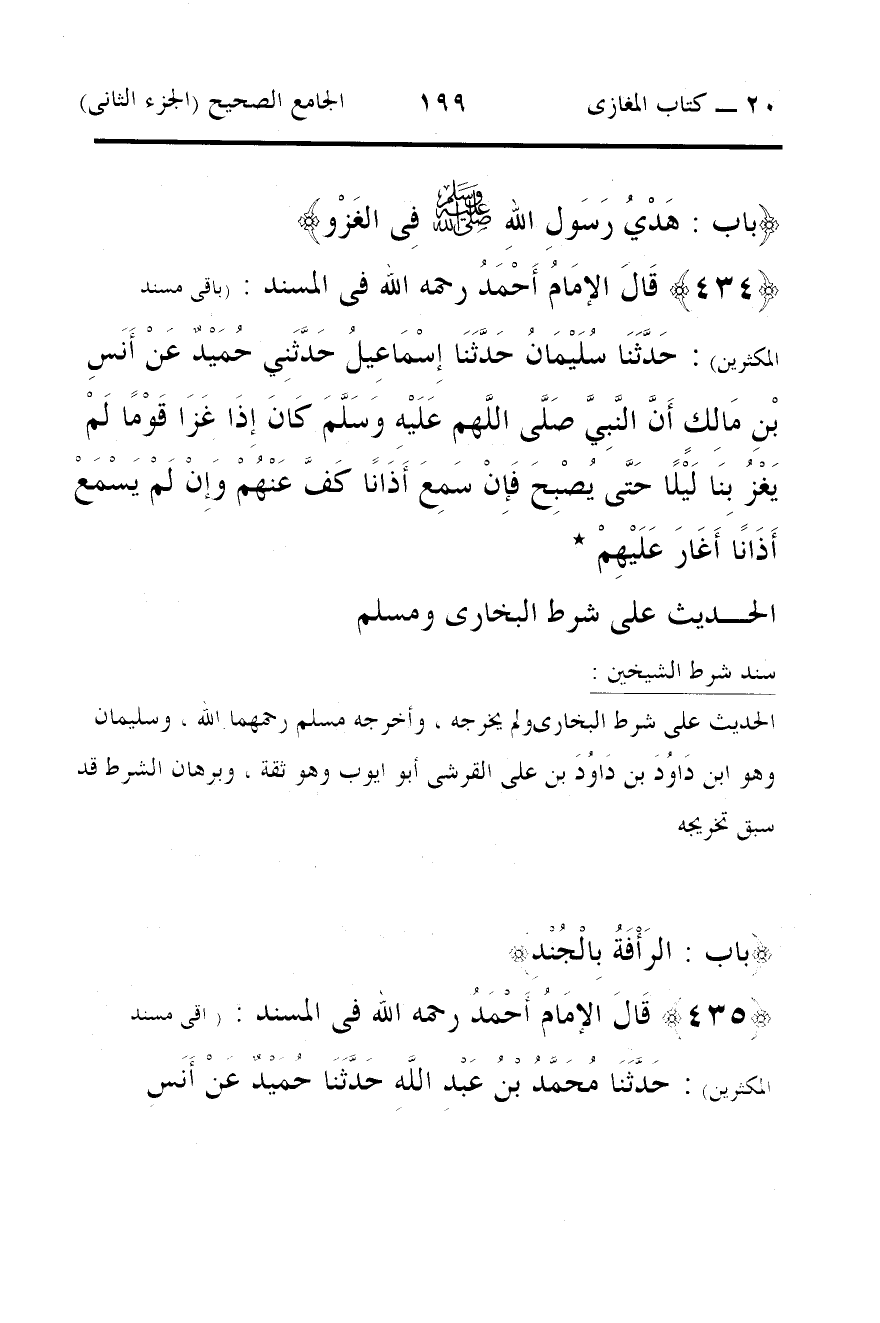 ٢٠ ـ كتاب المغازى ١٩٩ الجامع الصحيح (الجزء الثانى)
﴿باب : هَدْيُ رَسَولِ اللهِ ﷺ فِى الغَزْو﴾
﴿٤٣٤﴾ قَالَ الإِمَامُ أَحْمَدُ رحمه الله فى المسند : (باقى مسند
المكثرين) : حَدَّثَنَا سُلَيْمَانُ حَدَّثَنَا إِسْمَاعِيلُ حَدَّثَنِي حُمَيْدٌ عَنْ أَنَسِ
بْنِ مَالِكٍ أَنَّ النَّبِيَّ صَلَّى اللَّهم عَلَيْهِ وَسَلَّمَ كَانَ إِذَا غَزَا قَوْمًا لَمْ
يَغْزُ بِنَا لَيْلًا حَتَّى يُصْبِحَ فَإِنْ سَمِعَ أَذَانًا كَفَّ عَنْهُمْ وَإِنْ لَمْ يَسْمَعْ
أَذَانًا أَغَارَ عَلَيْهِمْ *
الحـــديث على شرط البخارى ومسلم
سند شرط الشيخين :
الحديث على شرط البخارى ولم يخرجه ، وأخرجه مسلم رحمهما الله ، وسليمان
وهو ابن دَاوُدَ بن دَاوُدَ بن على القرشى أبو ايوب وهو ثقة ، وبرهان الشرط قد
سبق تخريجه
﴿باب : الرَأْفَةُ بِالْجُنْدِ﴾
﴿٤٣٥﴾ قَالَ الإِمَامُ أَحْمَدُ رحمه الله فى المسند : ( اقى مسند
المكثرين) : حَدَّثَنَا مُحَمَّدُ بْنُ عَبْدِ اللَّهِ حَدَّثَنَا حُمَيْدٌ عَنْ أَنَسِ